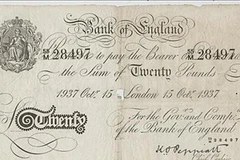 Bank of England
55/M 28497 to pay the Bearer 55/M 28497
the Sum of Twenty Pounds
1937 Oct. 15 London 15 Oct. 1937
For the Gov.r and Comp.a
Twenty of the Bank of England
28497
K O Peppiatt